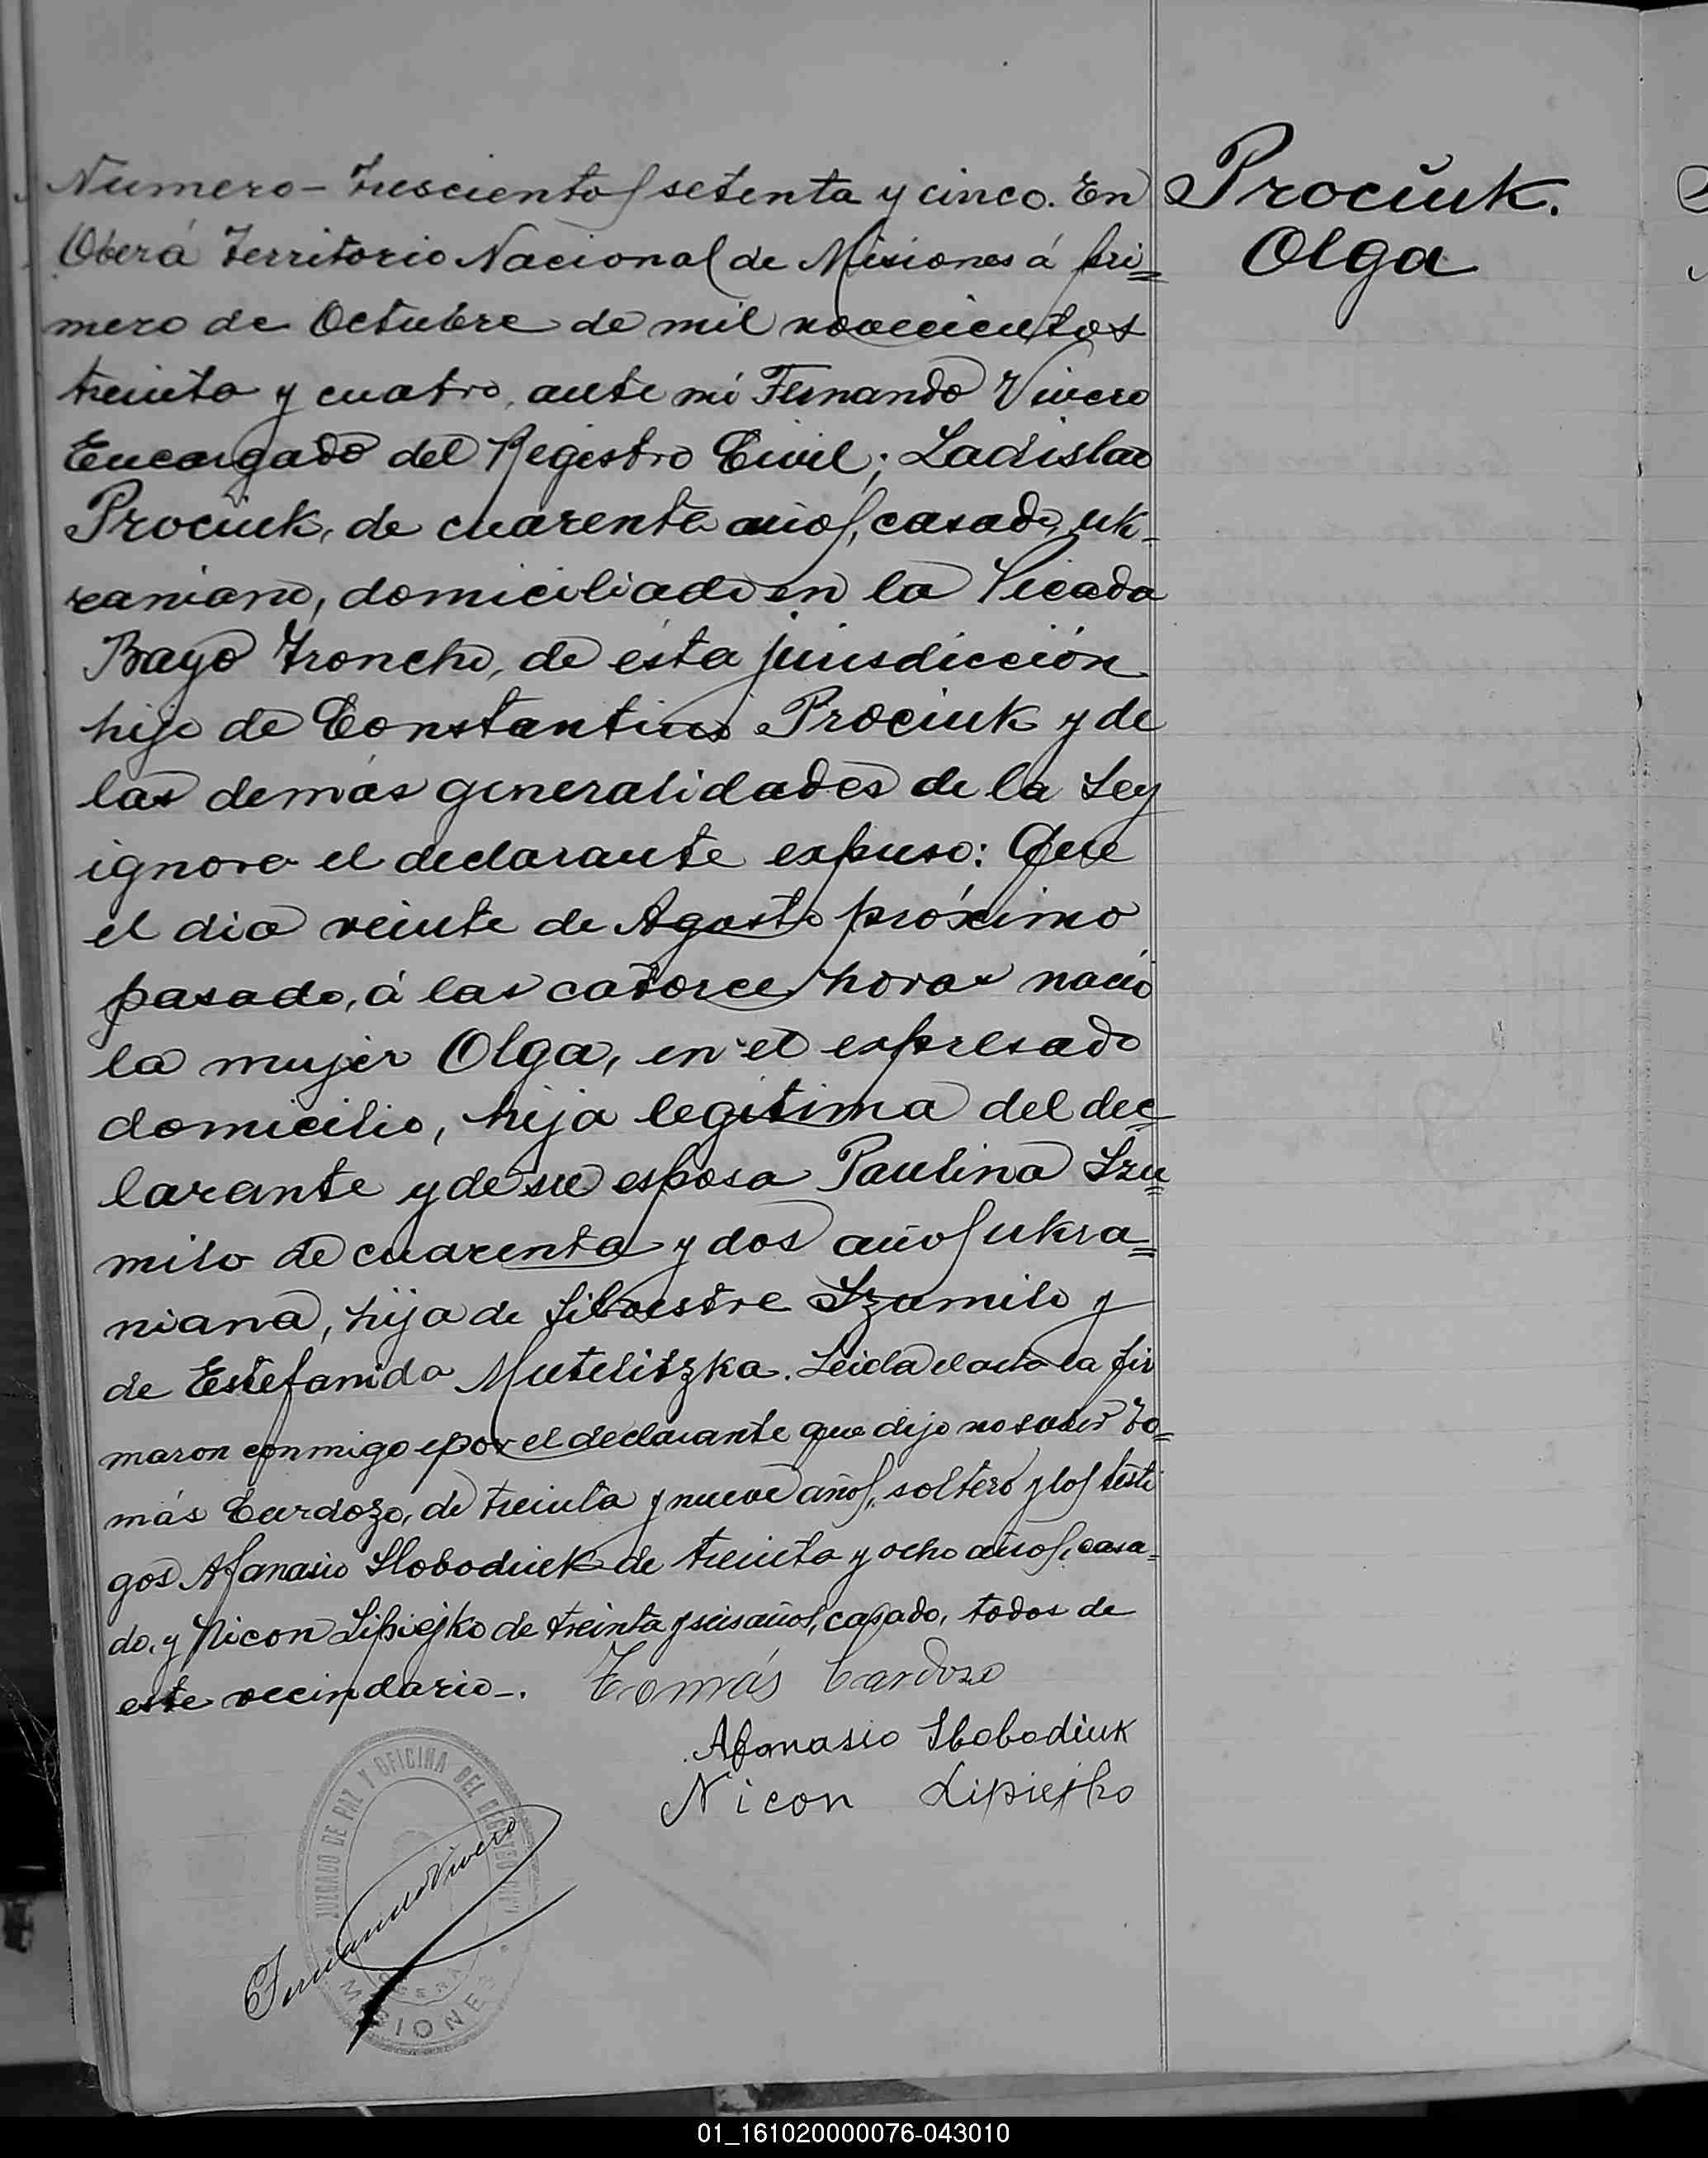 Prociuk.
Olga
Numero - Trescientos setenta y cinco. En
Oberá Territorio Nacional de Misiones á pri=
mero de Octubre de mil novecientos
treinta y cuatro, ante mi Fernando Vivero
Encargado del Registro Civil; Ladislao
Prociuk, de cuarenta años, casado, uk-
raniano, domiciliado en la Picada
Bayo Troncho, de ésta jurisdicción
hijo de Constantino Prociuk y de
las demás generalidades de la Ley
ignora el declarante expuso: Que
el dia veinte de Agosto próximo
pasado, á las catorce horas nació
la mujer Olga, en el expresado
domicilio, hija legitima del dec=
larante y de su esposa Paulina Szu=
milo de cuarenta y dos años ukra=
niana, hija de Silvestre Szumilo y
de Estefanida Mutelitzka. Leida el acta la fir
maron conmigo y por el declarante que dijo no saber To=
más Cardozo, de treinta y nueve años, soltero y los testi
gos Afanasio Slobodiuk de treinta y ocho años, casa=
do, y Nicon Lipiejko de treinta y seis años, casado, todos de
este vecindario-.
Tomás Cardozo
Afanasio Slobodiuk
Nicon Lipiejko
Fernando Vivero
JUZGADO DE PAZ Y OFICINA DEL REGISTRO CIVIL
OBERA
MISIONES
01_161020000076-043010